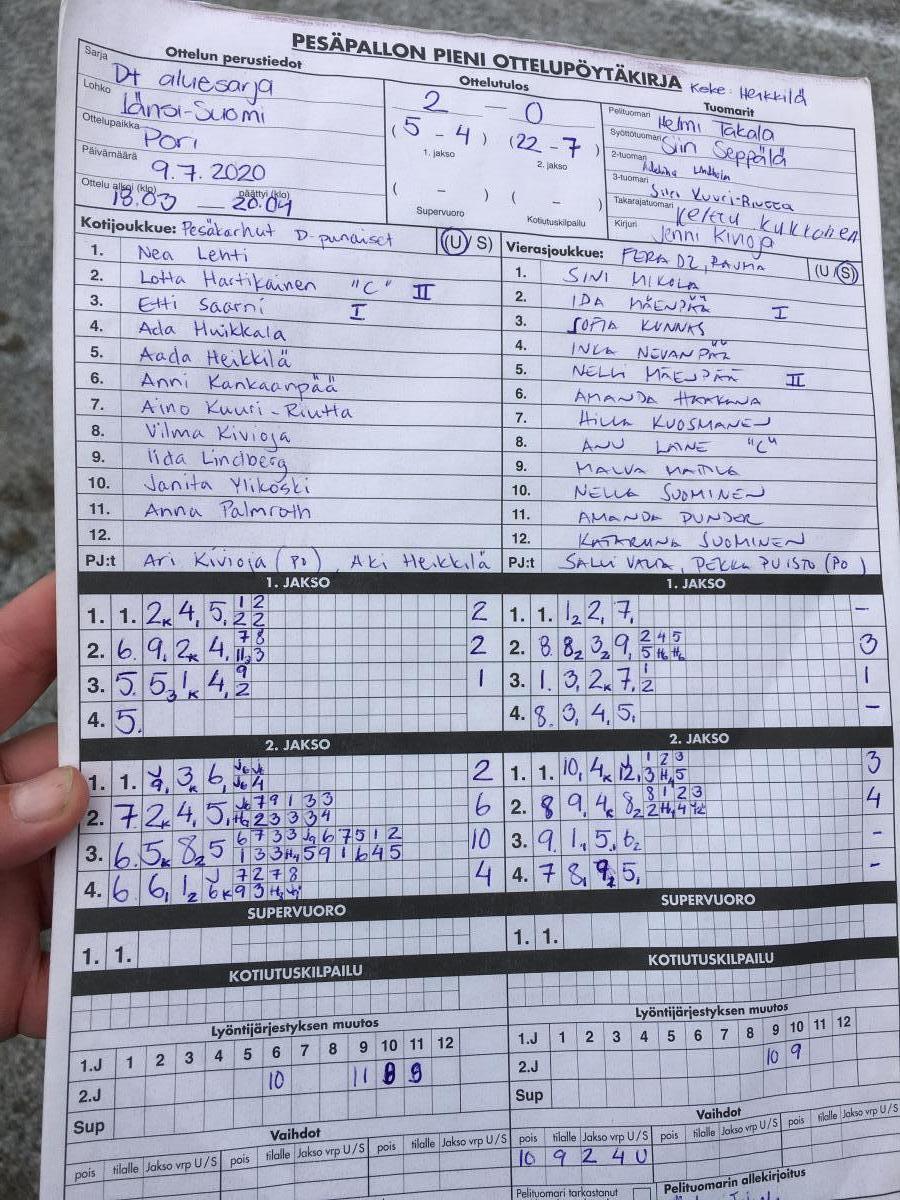 PESÄPALLON PIENI OTTELUPÖYTÄKIRJA Keke: Heikkilä
Ottelun perustiedot
Sarja D+ aluesarja
Lohko Länsi-Suomi
Ottelupaikka Pori
Päivämäärä 9.7.2020
Ottelu alkoi (klo) 18.03 päättyi (klo) 20.04
Ottelutulos
2 — 0
(5 - 4) (22 - 7)
1. jakso 2. jakso
( - ) ( - )
Supervuoro Kotiutuskilpailu
Tuomarit
Pelituomari Helmi Takala
Syöttötuomari Siin Seppälä
2-tuomari
3-tuomari Siiri Kuuri-Riutta
Takarajatuomari Kerttu Kukkonen
Kirjuri Jenni Kivioja
Kotijoukkue: Pesäkarhut D-punaiset (U / S)
1. Nea Lehti
2. Lotta Hartikainen "C" II
3. Etti Saarni I
4. Ada Huikkala
5. Aada Heikkilä
6. Anni Kankaanpää
7. Aino Kuuri-Riutta
8. Vilma Kivioja
9. Iida Lindberg
10. Janita Ylikoski
11. Anna Palmroth
12.
PJ:t Ari Kivioja (PO), Aki Heikkilä
Vierasjoukkue: FERA D2, RAUMA (U / S)
1. SINI MIKOLA
2. IDA MÄENPÄÄ I
3. SOFIA KUNNAS
4. INKA NEVANPÄÄ
5. NELLI MÄENPÄÄ II
6. AMANDA HAAKANA
7. HILLA KUOSMANEN
8. ANU LAINE "C"
9. MALVA MATTILA
10. NELLA SUOMINEN
11. AMANDA DUNDER
12. KATARIINA SUOMINEN
PJ:t SALLI VALLA, PEKKA PUISTO (PO)
1. JAKSO
1. 1. 2k 4, 5, 1 2 2
2 2
2. 6. 9, 2k 4, 7 8 2
11, 3
3. 5. 5, 1k 4, 9 1
2
4. 5.
1. JAKSO
1. 1. 1, 2, 7, –
2. 8. 8, 3, 9, 2 4 5 3
3. 1. 3, 2k 7, 1 1
2
4. 8. 3, 4, 5, –
2. JAKSO
1. 1. 3k 6, 2
2. 7 2k 4, 5, 7 9 1 3 3 6
2 3 3 3 4
3. 6. 5k 8, 5 10
4. 6 6, 1, 7 2 7 8 4
2. JAKSO
1. 1. 10, 4k 12, 1 2 3 3
2. 8 9, 4k 8, 8 1 2 3 4
3. 9. 1, 5, 6, –
4. 7 8, 9, 5, –
SUPERVUORO
1. 1.
SUPERVUORO
1. 1.
KOTIUTUSKILPAILU
KOTIUTUSKILPAILU
Lyöntijärjestyksen muutos
1.J 1 2 3 4 5 6 7 8 9 10 11 12
2.J 10 11 8 9
Sup
Lyöntijärjestyksen muutos
1.J 1 2 3 4 5 6 7 8 9 10 11 12
2.J 10 9
Sup
Vaihdot
pois tilalle Jakso vrp U/S pois tilalle Jakso vrp U/S pois tilalle Jakso vrp U/S
Vaihdot
pois tilalle Jakso vrp U/S pois tilalle Jakso vrp U/S pois tilalle Jakso vrp U/S
10 9 2 4 U
Pelituomari tarkastanut
Pelituomarin allekirjoitus